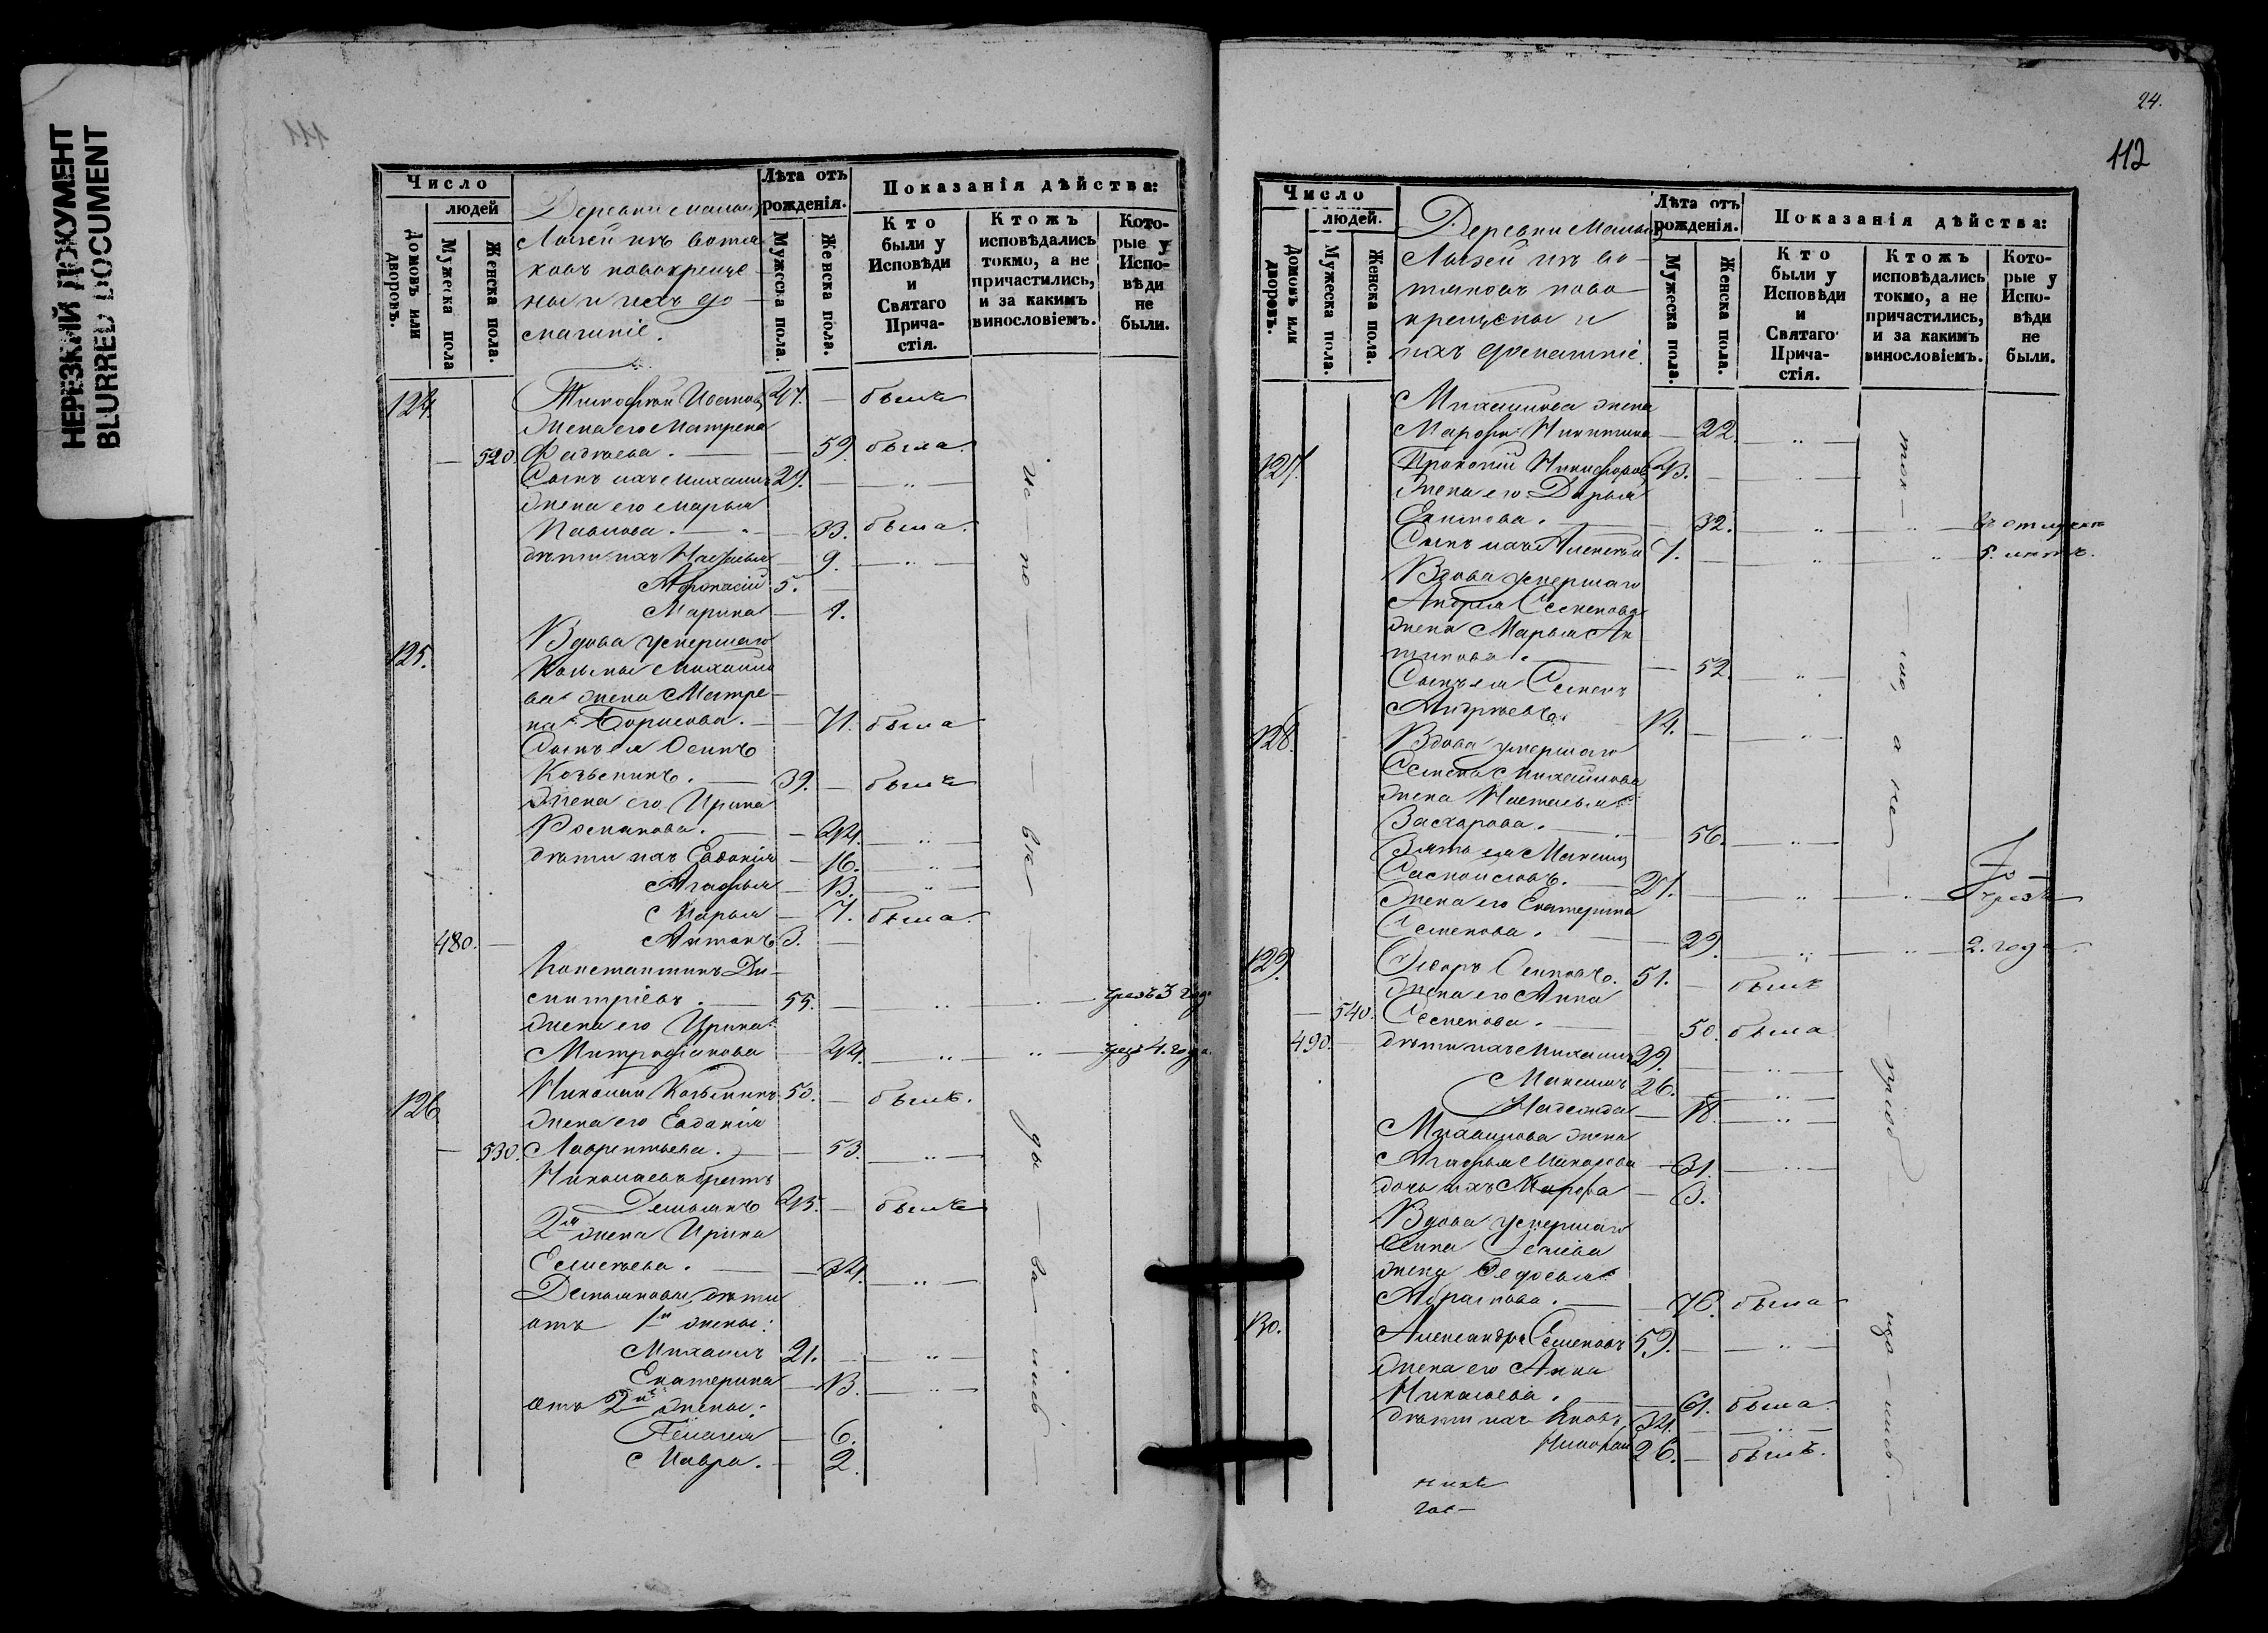 НЕРЕЗКИЙ ДОКУМЕНТ
BLURRED DOCUMENT
111
Число
людей
Домовъ или дворовъ.
Мужеска пола
Женска пола.
Деревни малыхъ
вотя-
ковъ новокреще-
ны и ихъ до-
машніе.
Лѣта отъ
рожденія.
Мужеска пола.
Женска пола.
Показанія дѣйства:
Кто
были у
Исповѣди
и
Святаго
Прича-
стія.
Ктожъ
исповѣдались
токмо, а не
причастились,
и за какимъ
винословіемъ.
Кото-
рые у
Испо-
вѣди
не
были.
124. Тимофей 47. — былъ
Жена его Матрена
— 520. Фадѣева. — — 59. была.
Сынъ ихъ Михаилъ 29. — — „ —
Жена его Марья
Павлова. — — 33. была.
дѣти ихъ Настасья — 9. — „ —
Афанасій 5. —
Марина — 1.
125. Вдова умершаго
Козьмы Михайло-
ва жена Матре-
на Борисова. — — 71. была
Сынъ ея Осипъ
Козьминъ. — 39. — былъ
Жена его Ирина
Романова. — — 44. — „ —
дѣти ихъ Евдокія — 16. — „ —
Агафья — 13. — „ —
Марья — 7. была.
480. — Антонъ 3. —
Константинъ Ди-
митріевъ. — 55. — „ — чрезъ 3 года
Жена его Ирина
Митрофанова — 44. — „ — „ — чрезъ 4. года
126 Николай Козьминъ 50. — былъ.
Жена его Евдокія
— 530. Лаврентьева. — — 53. — „ —
Николаевъ братъ
Демьянъ 45. — былъ
2я жена Ирина
Елисѣева. — — 34. — „ —
Демьяновы дѣти
отъ 1й жены:
Михаилъ 21. — — „ —
Екатерина — 13. — „ —
отъ 2й жены:
Пелагея — 6.
Мавра. — 2.
ис — по — вѣ — ды — ва — лись —
24.
112
Число
людей.
Домовъ или дворовъ.
Мужеска пола.
Женска пола.
Деревни Малыхъ
во-
тяковъ ново-
крещены и
ихъ домашніе.
Лѣта отъ
рожденія.
Мужеска пола.
Женска пола.
Показанія дѣйства:
Кто
были у
Исповѣди
и
Святаго
Прича-
стія.
Ктожъ
исповѣдались
токмо, а не
причастились,
и за какимъ
винословіемъ.
Кото-
рые у
Испо-
вѣди
не
были.
Михайлова жена
Марфа Никитина — 22. — „ —
127. Прокопій Никифоровъ 43. — — „ —
Жена его Дарья
— 32. — „ — „ — въ отлучкѣ
Сынъ ихъ Алексѣй 7. — — „ — „ — 5. лѣтъ.
Вдова умершаго
Андрея Семенова
жена Марья Ан-
типова. — — 52. — „ —
Сынъ ея Семенъ
Андрѣевъ. 14. — — „ —
128. Вдова умершаго
Семена Михайлова
жена Настасья
Захарова. — — 56. — „ —
Зять ея Максимъ
27. — — „ — „ — чрезъ
Жена его Екатерина
Семенова. — — 29. — „ — „ — 2. года.
129. Ѳедоръ Осиповъ. 51. — былъ
Жена его Анна
— 540. Семенова. — — 50. была
490. — дѣти ихъ Михаилъ 29. — — „ —
Максимъ 26. — — „ —
Надежда — 18. — „ —
Михайлова жена
Агафья Макарова — 31. — „ —
дочь ихъ Марфа — 3.
Вдова умершаго
Осипа
жена Ѳедосья
Абрамова. — — 76. была
130. Александръ Семеновъ 59. — — „ —
Жена его Анна
Николаева. — — 61. была.
дѣти ихъ Яковъ 34. — — „ —
Николай 26. — былъ.
ток — мо, а не — прі — об — ща — лись. —